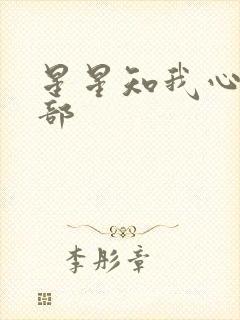 星星知我心
部
李彤章